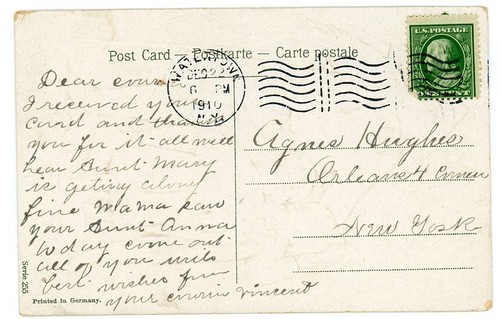 Post Card — Postkarte — Carte postale
WATERTOWN
DEC 2
6 PM
1910
N.Y.
U.S. POSTAGE
Dear cousin
I received your
card and thank
you for it all well
hear Aunt Mary
is geting along
fine Mama saw
your Aunt Anna
to day come out
all of you with
best wishes from
your cousin Vincent
Agnes Hughes
Orleans 4 Corners
New York
Serie 255
Printed in Germany.